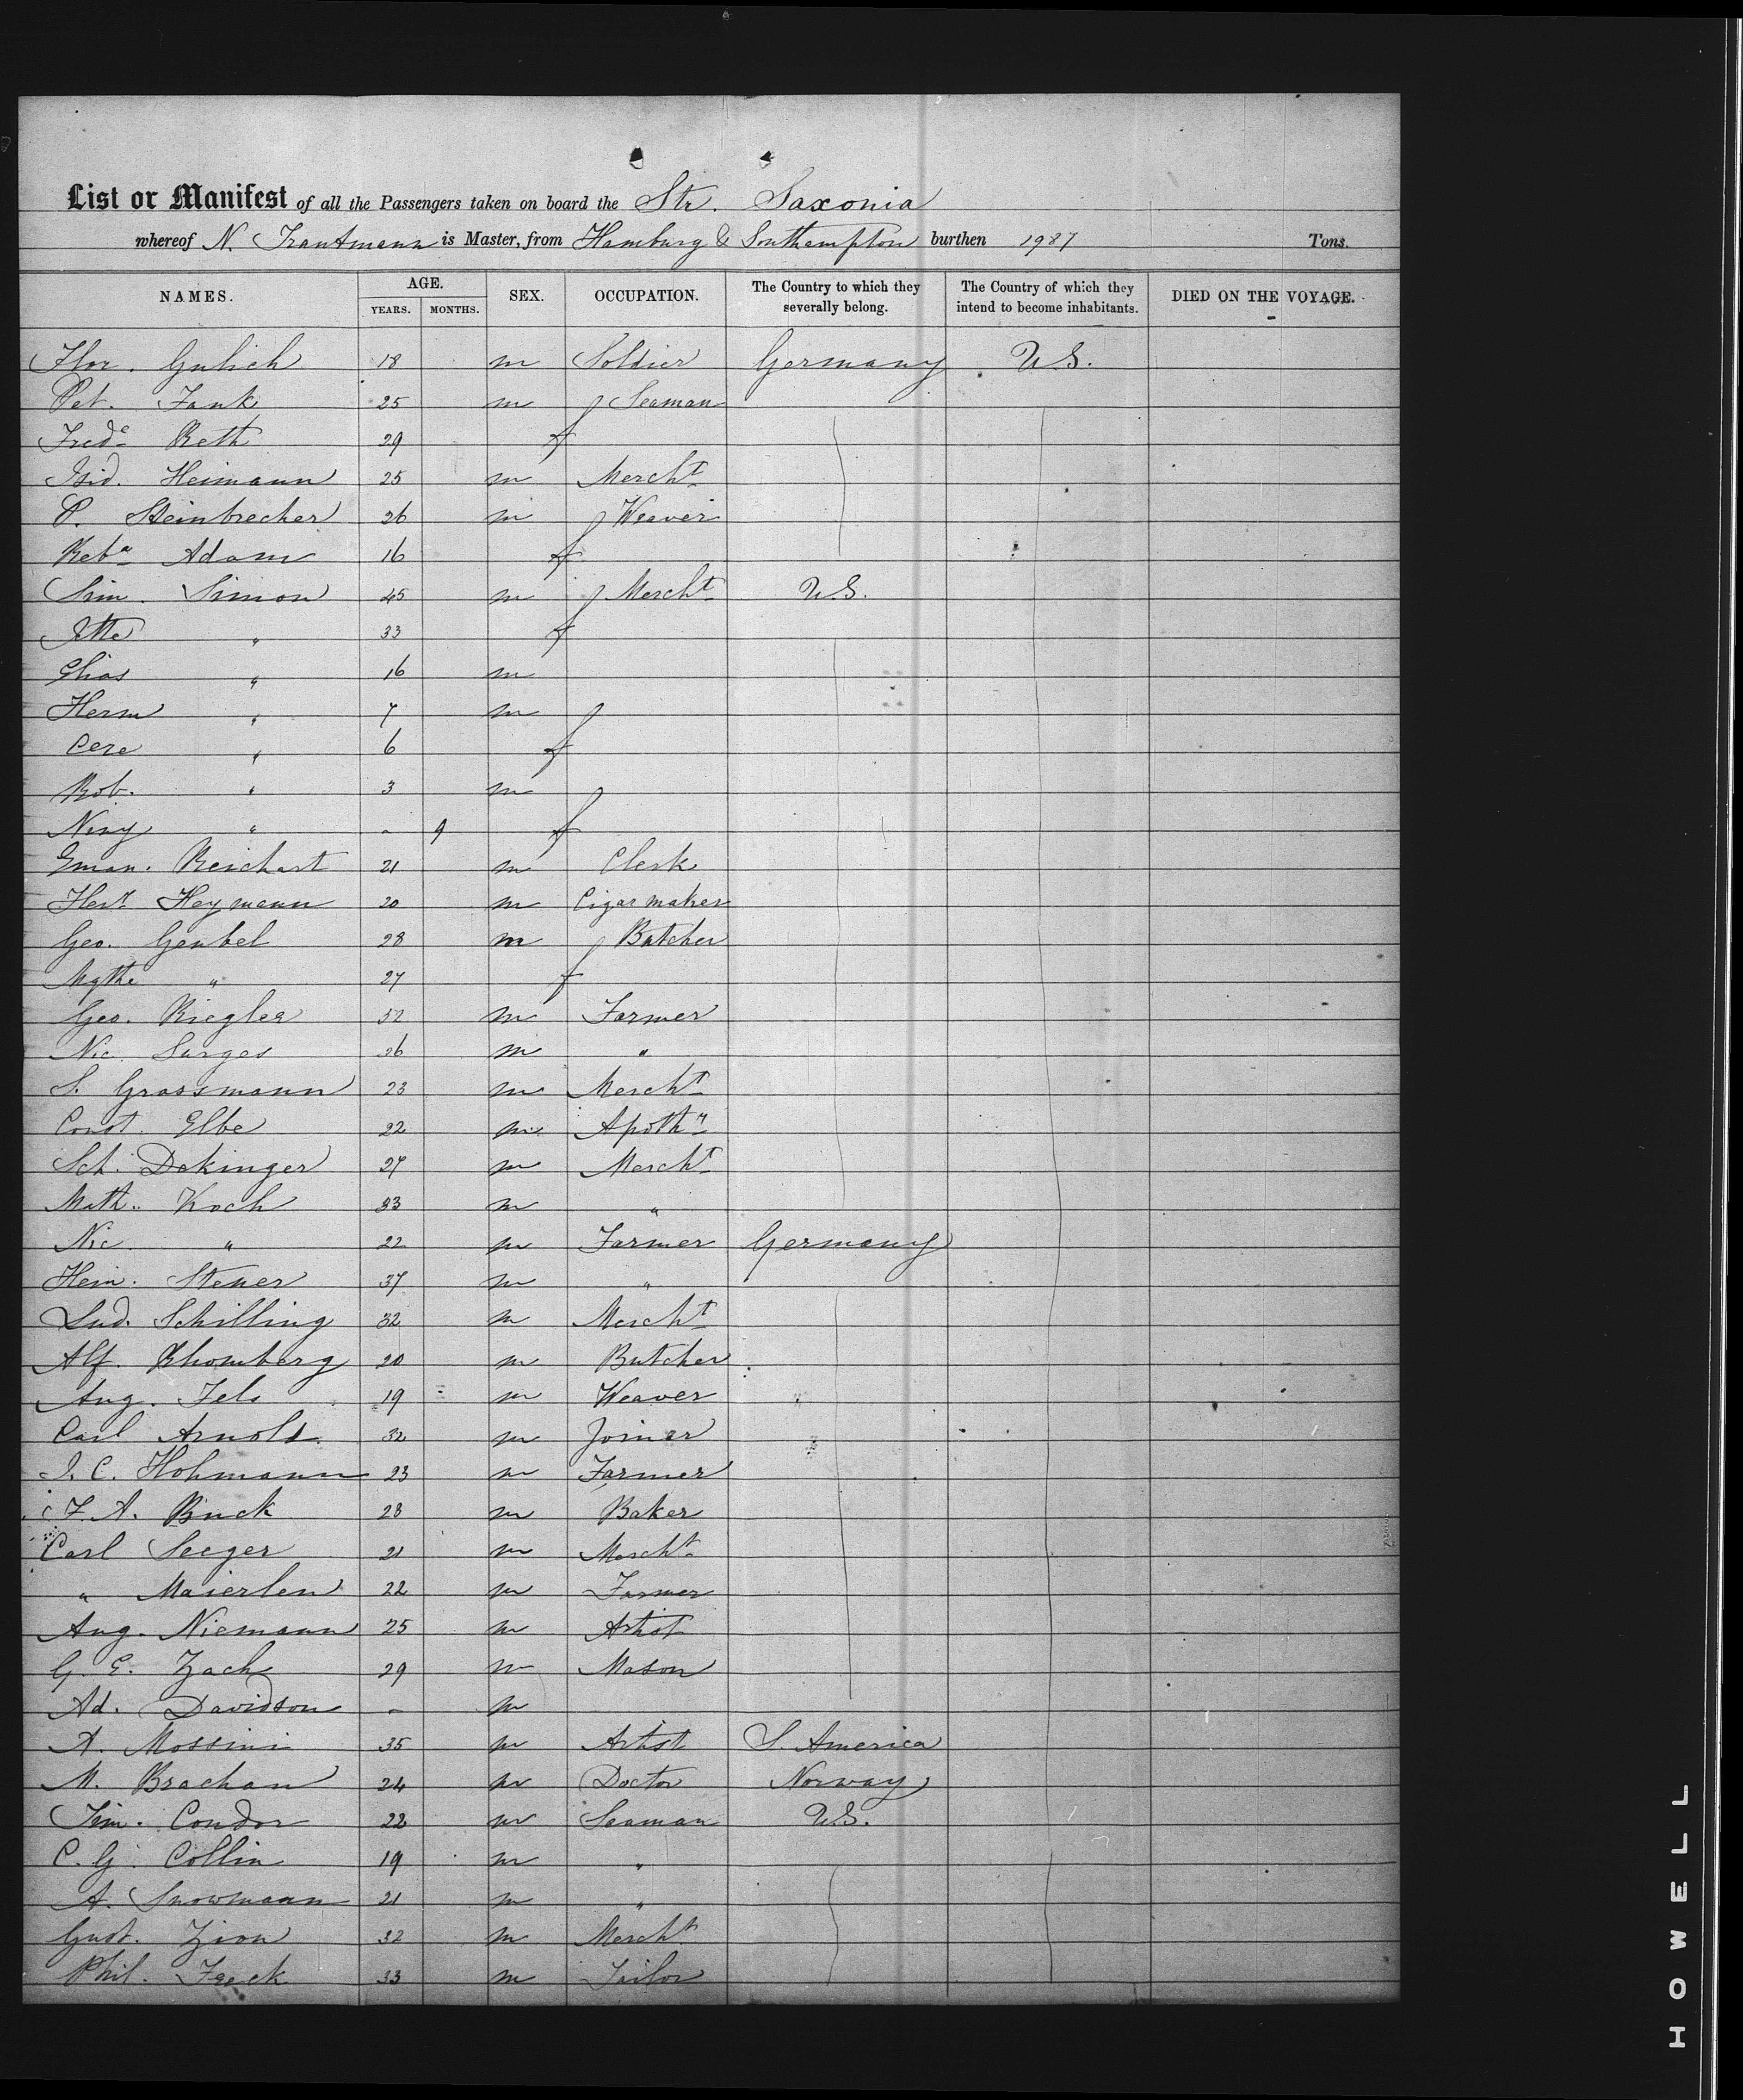 List or Manifest of all the Passengers taken on board the Str. Saxonia
whereof N. Trautmann is Master, from Hamburg & Southampton burthen 1987 Tons.
NAMES. AGE. YEARS. MONTHS. SEX. OCCUPATION. The Country to which they severally belong. The Country of which they intend to become inhabitants. DIED ON THE VOYAGE.
Flor. Gulich 18 m Soldier Germany U.S.
Pet. Fank 25 m Seaman
Fredᵉ Reth 29 f
Isid. Heimann 25 m Mercht
P. Steinbrecher 26 m Weaver
Rebᵃ Adam 16 f
Sim. Simon 45 m Mercht U.S.
Jette " 33 f
Elias " 16 m
Herm " 7 m
Cere " 6 f
Rob. " 3 m
Niny " - 9 f
Eman. Reichart 21 m Clerk
Hern Heymann 20 m Cigar maker
Geo. Goubel 28 m Butcher
Mgthe " 27 f
Geo. Riegler 52 m Farmer
Nic. Surges 26 m "
S. Grassmann 23 m Mercht
Const. Elbe 22 m Apothy
Sch. Dokinger 27 m Mercht
Math. Koch 23 m "
Nic " 22 m Farmer Germany
Hein. Stener 37 m "
Lud. Schilling 32 m Mercht
Alf. Rhomberg 20 m Butcher
Aug. Fels 19 m Weaver
Carl Arnold 32 m Joiner
J. C. Hohmann 23 m Farmer
F. A. Buck 23 m Baker
Carl Seeger 21 m Mercht
" Maierlen 22 m Farmer
Aug. Niemann 25 m Artist
G. E. Zach 29 m Mason
Ad. Davidson - m
A. Mossini 35 m Artist S. America
M. Brachan 24 m Doctor Norway
Jim. Condor 22 m Seaman U.S.
C. G. Collin 19 m "
A. Snowmann 21 m "
Gust. Zion 32 m Mercht
Phil. Freck 33 m Tailor
HOWELL